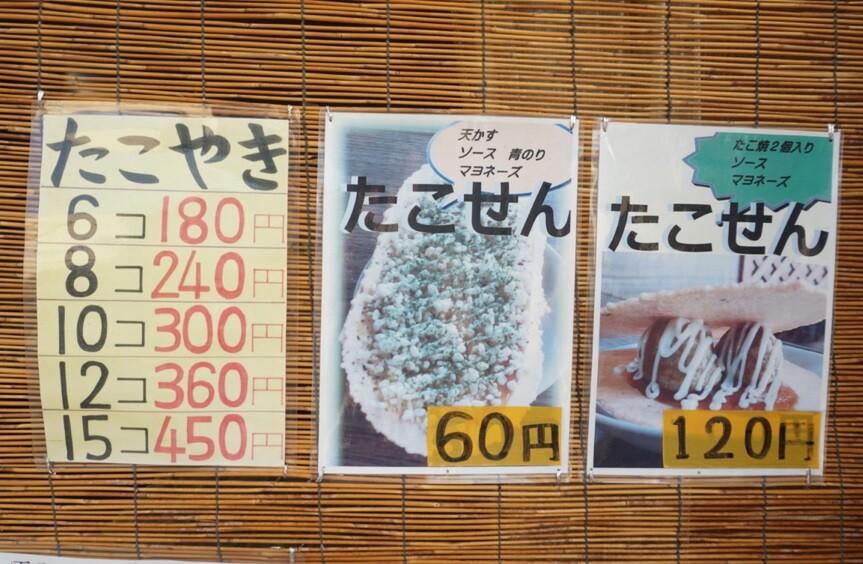 たこやき
6コ180円
8コ240円
10コ300円
12コ360円
15コ450円
天かす
ソース 青のり
マヨネーズ
たこせん
60円
たこ焼2個入り
ソース
マヨネーズ
たこせん
120円